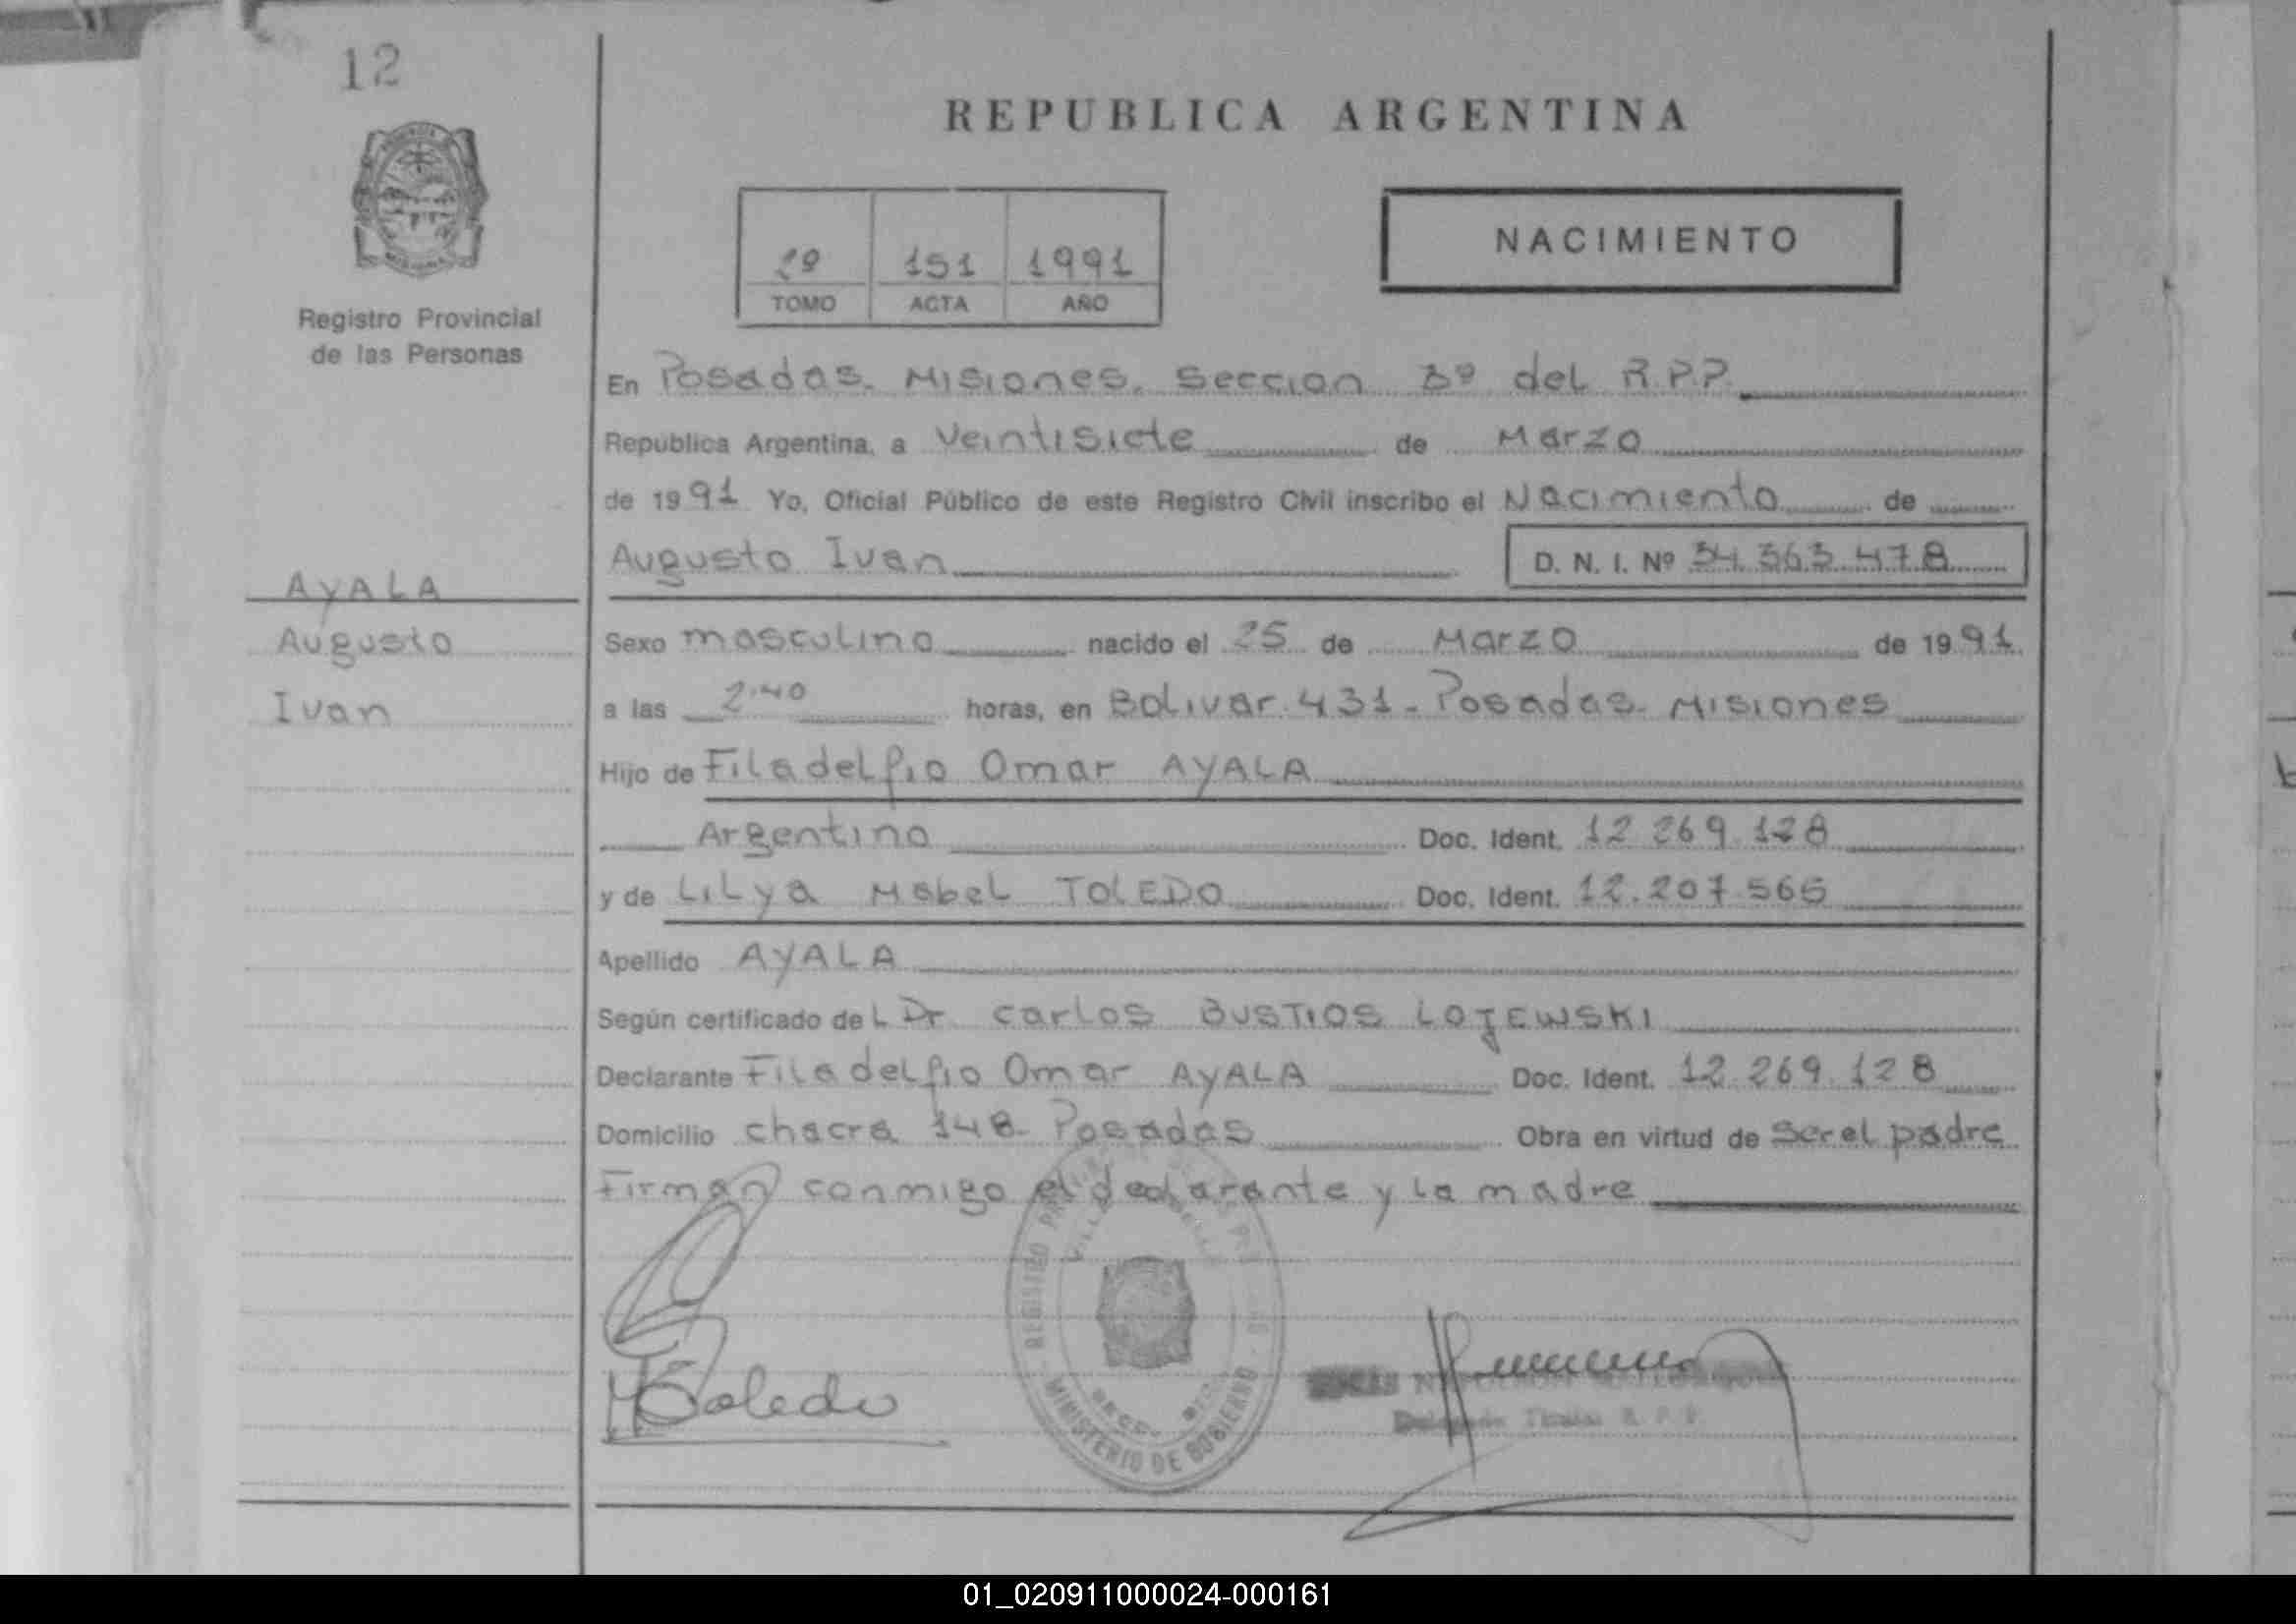 12
REPUBLICA ARGENTINA
NACIMIENTO
2º 151 1991
TOMO ACTA AÑO
Registro Provincial
de las Personas
En Posadas. Misiones. Seccion 3º del R.P.P.
Republica Argentina, a Veintisiete de Marzo
de 1991 Yo, Oficial Público de este Registro Civil inscribo el Nacimiento de
Augusto Ivan D. N. I. Nº 34.363.478
AYALA
Augusto
Ivan
Sexo masculino nacido el 25 de Marzo de 1991
a las 2.40 horas, en Bolivar 431 - Posadas - Misiones
Hijo de Filadelfio Omar AYALA
Argentino Doc. Ident. 12.269.128
y de Lilya Mabel TOLEDO Doc. Ident. 12.207.566
Apellido AYALA
Según certificado del Dr. Carlos BUSTIOS LOJEWSKI
Declarante Filadelfio Omar AYALA Doc. Ident. 12.269.128
Domicilio chacra 148 - Posadas Obra en virtud de ser el padre
Firman conmigo el declarante y la madre
Toledo
MINISTERIO DE GOBIERNO
01_020911000024-000161